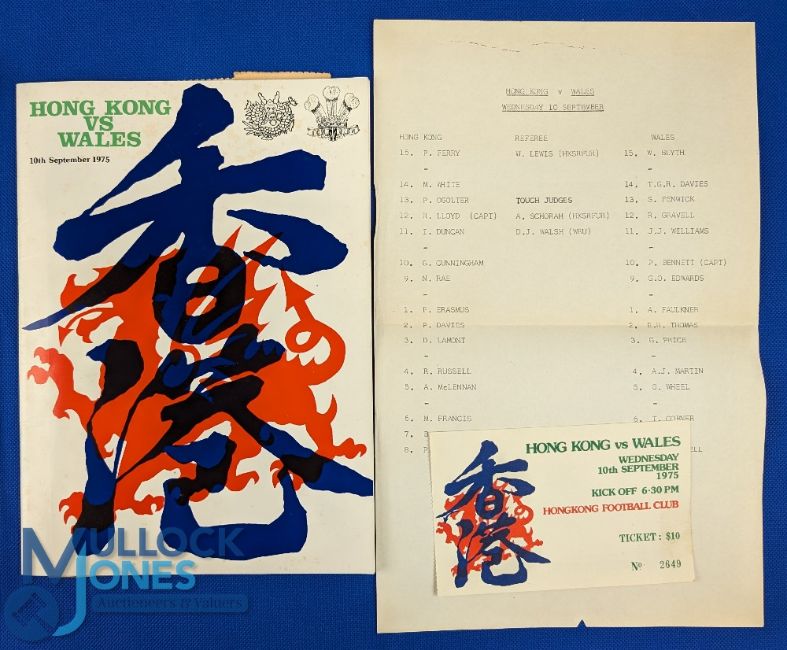 HONG KONG
VS
WALES
10th September 1975
香港
HONG KONG v WALES
WEDNESDAY 10 SEPTEMBER
HONG KONG REFEREE WALES
15. P. FERRY W. LEWIS (HKSRFUR) 15. W. BLYTH
14. M. WHITE 14. T.G.R. DAVIES
13. P. OGOLTER TOUCH JUDGES 13. S. FENWICK
12. R. LLOYD (CAPT) A. SCHORAH (HKSRFUR) 12. R. GRAVELL
11. I. DUNCAN D.J. WALSH (WRU) 11. J.J. WILLIAMS
10. G. CUNNINGHAM 10. P. BENNETT (CAPT)
9. N. RAE 9. G.O. EDWARDS
1. P. ERASMUS 1. A. FAULKNER
2. P. DAVIES 2. R.H. THOMAS
3. D. LAMONT 3. G. PRICE
4. R. RUSSELL 4. A.J. MARTIN
5. A. McLENNAN 5. G. WHEEL
6. M. FRANCIS 6. T.
7.
8.
HONG KONG vs WALES
WEDNESDAY
10th SEPTEMBER
1975
KICK OFF 6·30 PM
HONGKONG FOOTBALL CLUB
TICKET: $10
Nº 2649
香港
MULLOCK
JONES
Auctioneers & Valuers